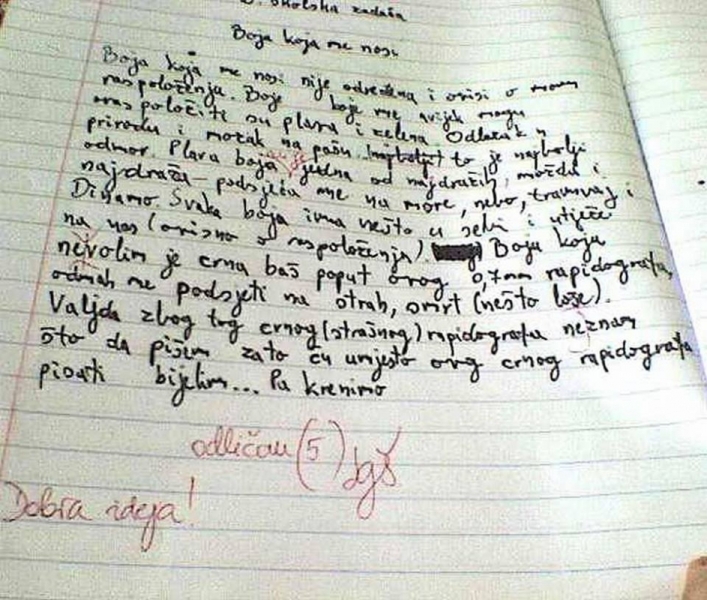 2. školska zadaća
Boja koja me nosi
Boja koja me nosi nije određena i ovisi o mom
raspoloženju. Boje koje me uvijek mogu
oraspoložiti su plava i zelena. Odlazak u
prirodu i mozak na pašu (najbolje) to je najbolji
odmor. Plava boja jedna od najdražih, možda i
najdraža - podsjeća me na more, nebo, tramvaj i
Dinamo. Svaka boja ima nešto u sebi i utječe
na nas (ovisno o raspoloženju). Boja koju
nevolim je crna baš poput ovog 0,7mm rapidografa,
odmah me podsjeti na strah, smrt (nešto loše).
Valjda zbog tog crnog (strašnog) rapidografa neznam
što da pišem zato ću umjesto ovog crnog rapidografa
pisati bijelim... Pa krenimo
odličan (5)
Dobra ideja!